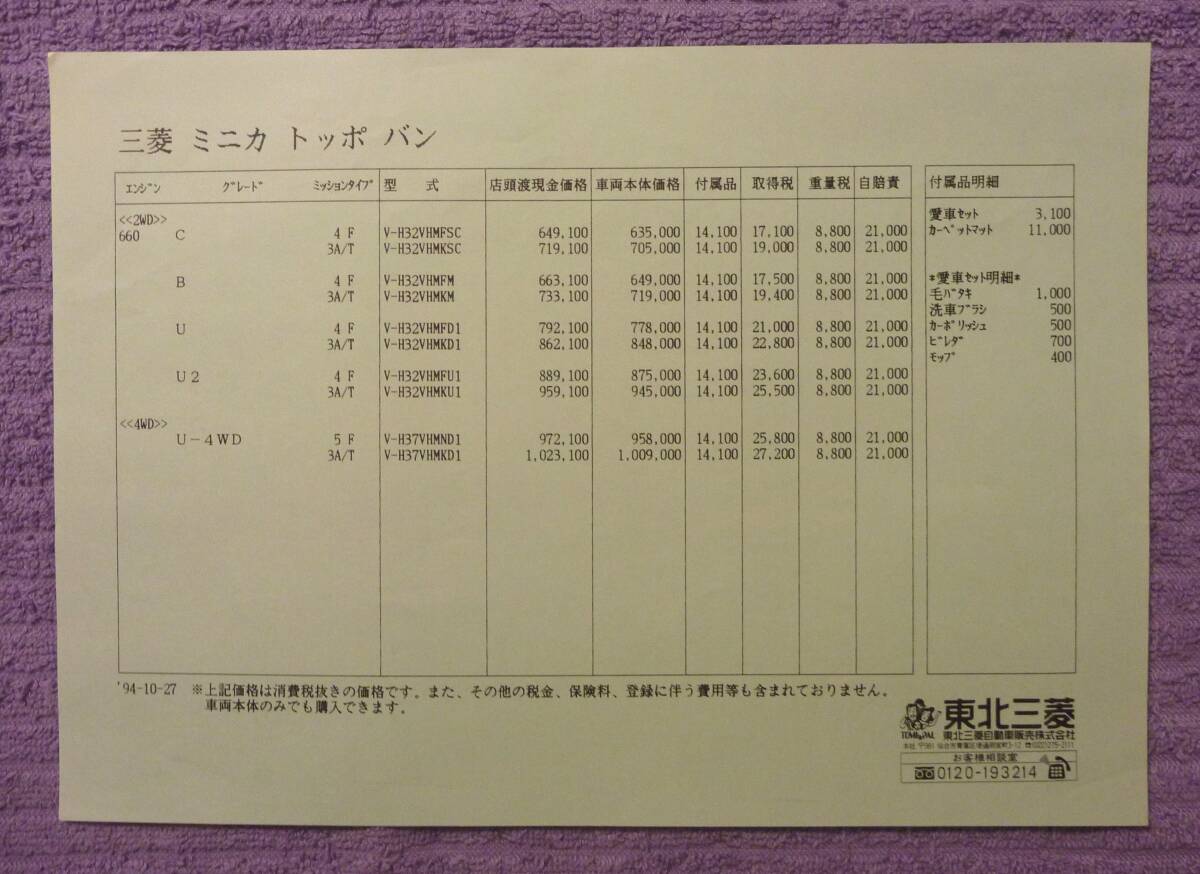 三菱 ミニカ トッポ バン
ｴﾝｼﾞﾝ ｸﾞﾚｰﾄﾞ ﾐｯｼｮﾝﾀｲﾌﾟ 型 式 店頭渡現金価格 車両本体価格 付属品 取得税 重量税 自賠責
<<2WD>>
660 C 4 F V-H32VHMFSC 649,100 635,000 14,100 17,100 8,800 21,000
3A/T V-H32VHMKSC 719,100 705,000 14,100 19,000 8,800 21,000
B 4 F V-H32VHMFM 663,100 649,000 14,100 17,500 8,800 21,000
3A/T V-H32VHMKM 733,100 719,000 14,100 19,400 8,800 21,000
U 4 F V-H32VHMFD1 792,100 778,000 14,100 21,000 8,800 21,000
3A/T V-H32VHMKD1 862,100 848,000 14,100 22,800 8,800 21,000
U2 4 F V-H32VHMFU1 889,100 875,000 14,100 23,600 8,800 21,000
3A/T V-H32VHMKU1 959,100 945,000 14,100 25,500 8,800 21,000
<<4WD>>
U－4WD 5 F V-H37VHMND1 972,100 958,000 14,100 25,800 8,800 21,000
3A/T V-H37VHMKD1 1,023,100 1,009,000 14,100 27,200 8,800 21,000
付属品明細
愛車ｾｯﾄ 3,100
ｶｰﾍﾟｯﾄﾏｯﾄ 11,000
*愛車ｾｯﾄ明細*
毛ﾊﾞﾀｷ 1,000
洗車ﾌﾞﾗｼ 500
ｶｰﾎﾟﾘｯｼｭ 500
ﾋﾞﾚﾀﾞ 700
ﾓｯﾌﾟ 400
'94-10-27 ※上記価格は消費税抜きの価格です。また、その他の税金、保険料、登録に伴う費用等も含まれておりません。
車両本体のみでも購入できます。
東北三菱
東北三菱自動車販売株式会社
お客様相談室
0120-193214